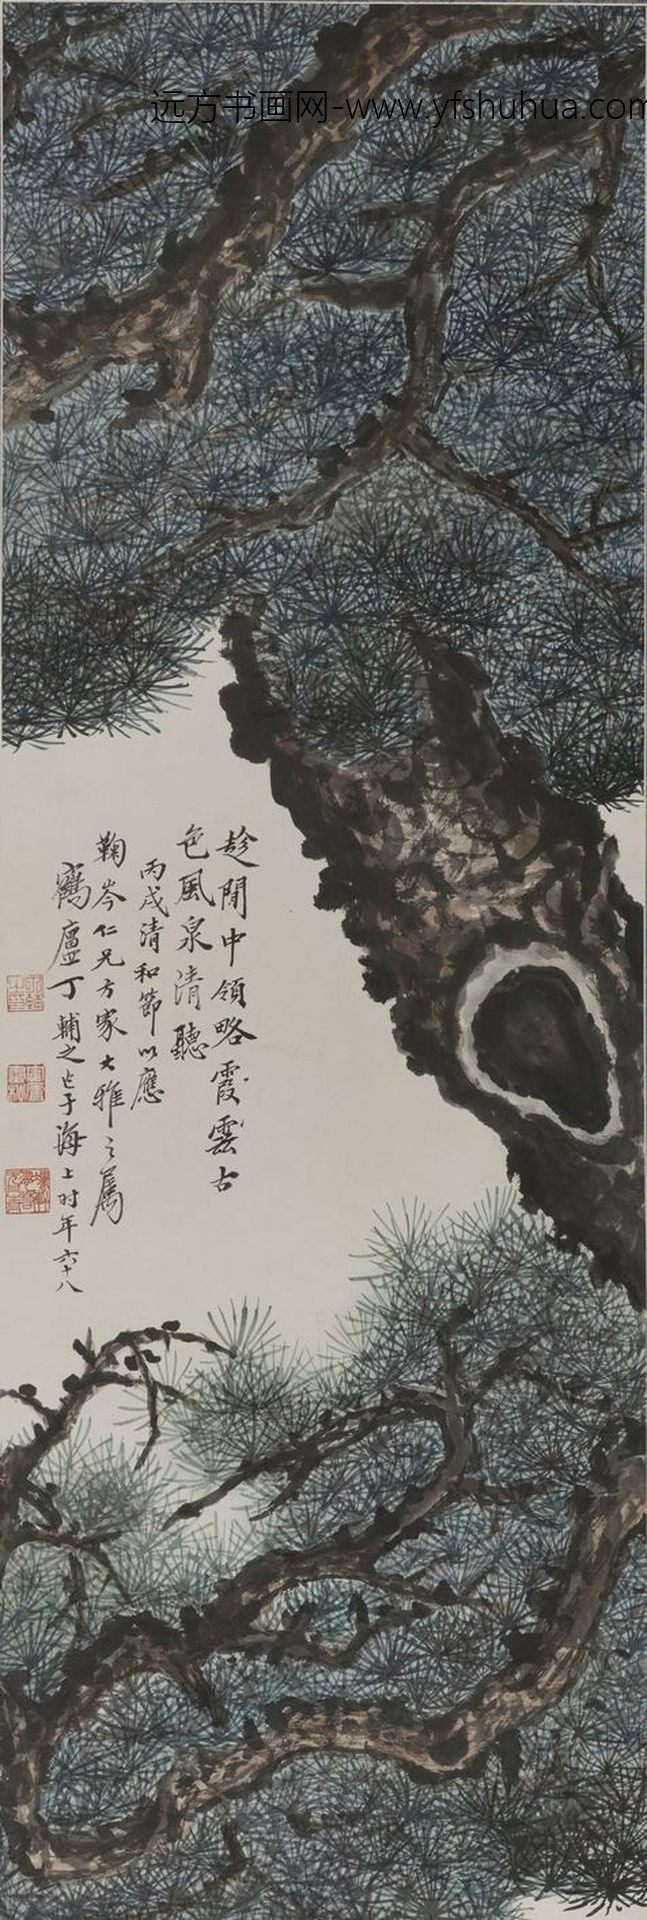 远方书画网-www.yfshuhua.com
趁閒中領略霞雲古
色風泉清聽
丙戌清和節以應
鞠岑仁兄方家大雅之屬
鶴廬丁輔之上于海上时年六十八